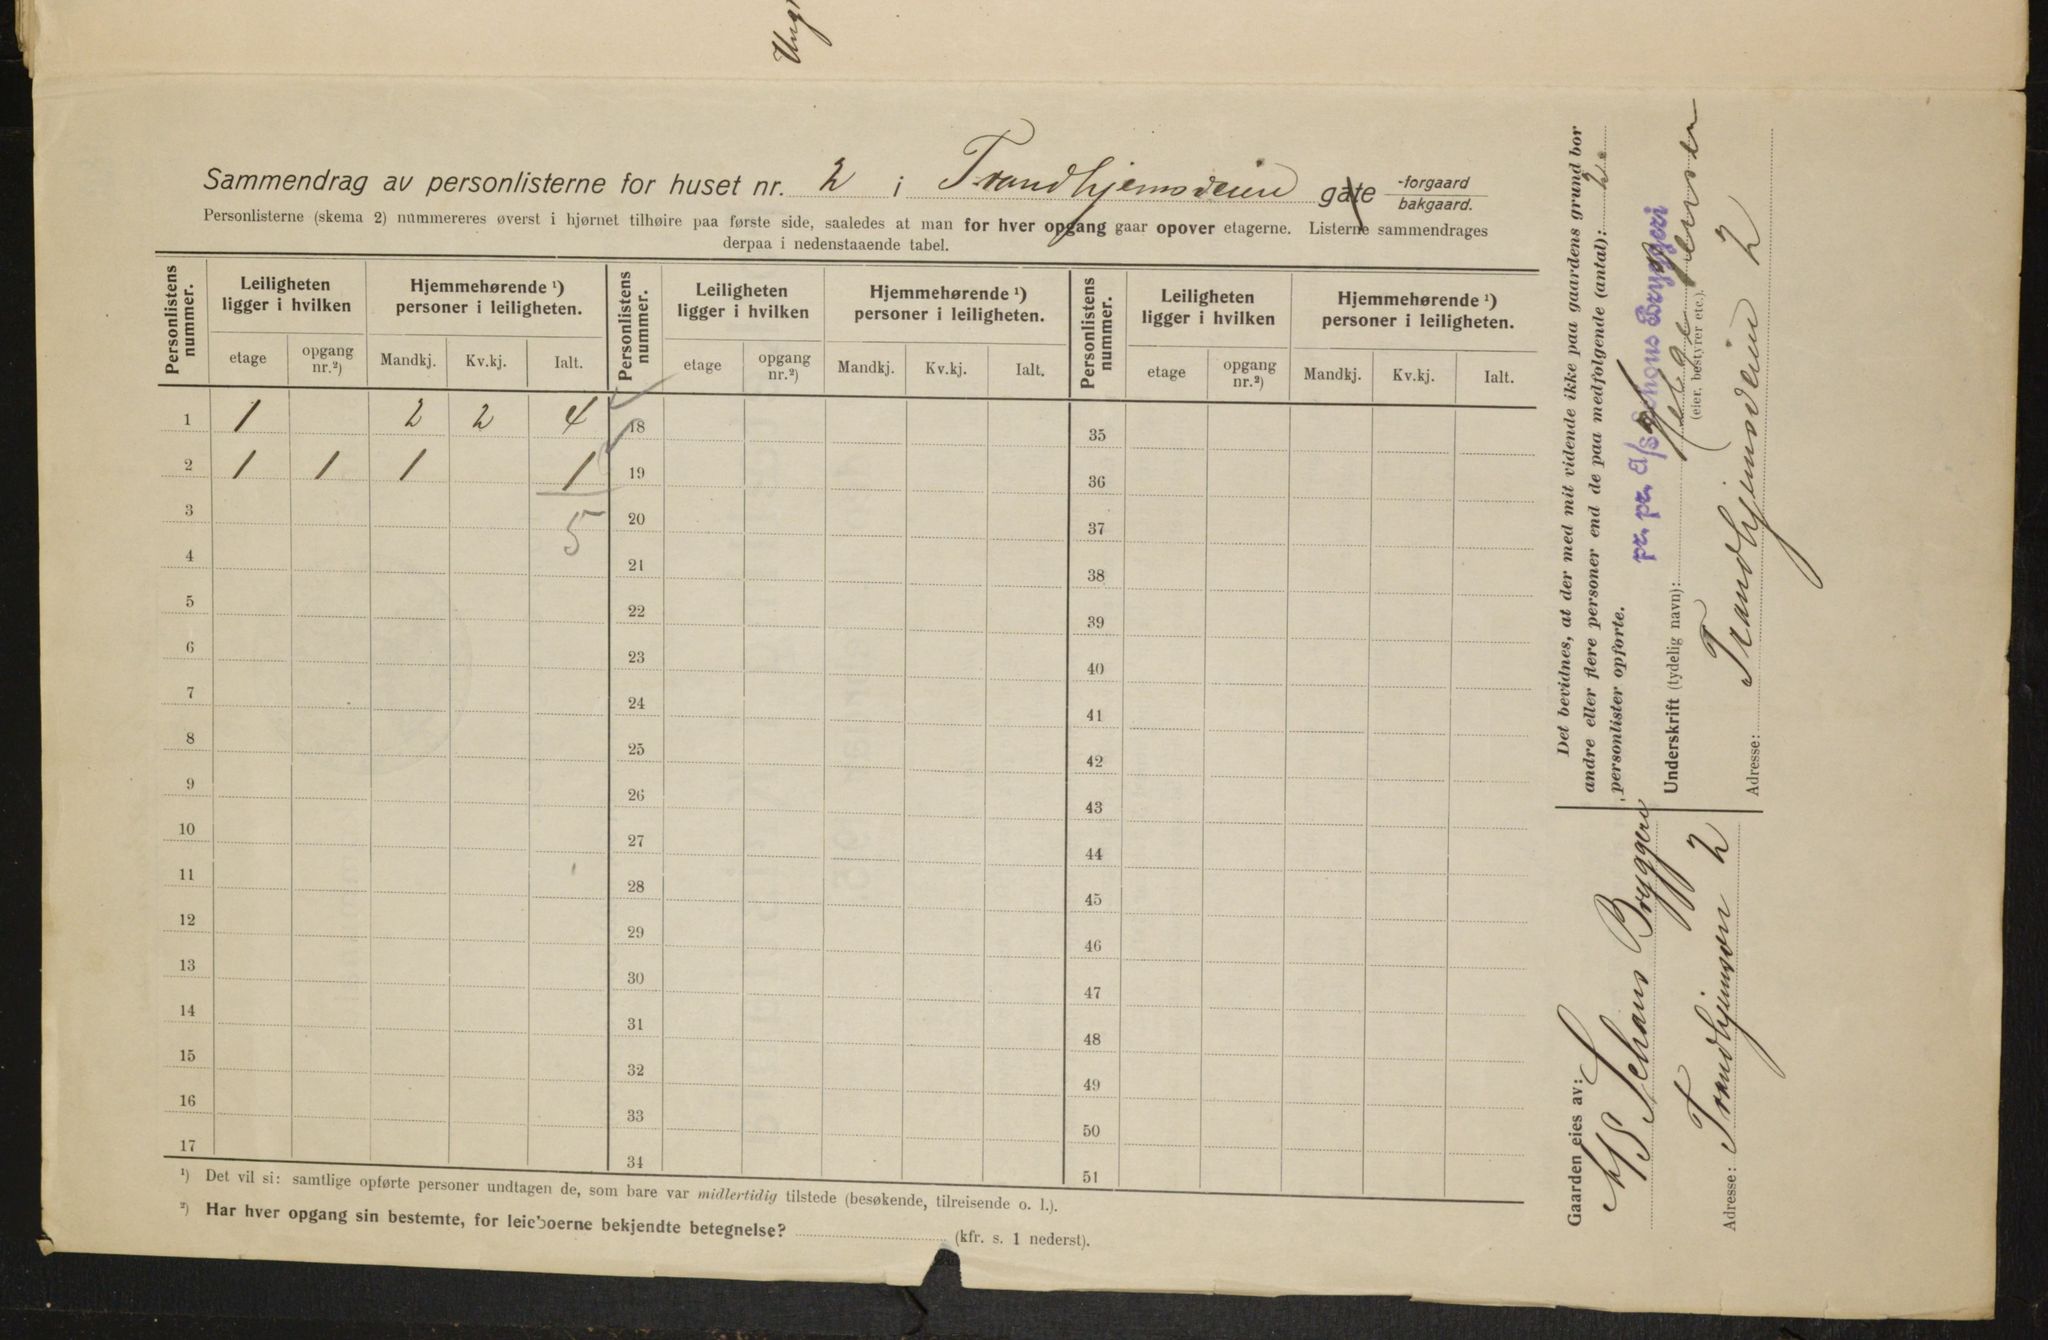 Ung
Sammendrag av personlisterne for huset nr. 2 i Trondhjemsveien gate -forgaard bakgaard.
Personlisterne (skema 2) nummereres øverst i hjørnet tilhøire paa første side, saaledes at man for hver opgang gaar opover etagerne. Listerne sammendrages
derpaa i nedenstaaende tabel.
Personlistens nummer. Leiligheten ligger i hvilken Hjemmehørende ¹) personer i leiligheten. Personlistens nummer. Leiligheten ligger i hvilken Hjemmehørende ¹) personer i leiligheten. Personlistens nummer. Leiligheten ligger i hvilken Hjemmehørende ¹) personer i leiligheten.
etage opgang nr.²) Mandkj. Kv.kj. Ialt. etage opgang nr.²) Mandkj. Kv.kj. Ialt. etage opgang nr.²) Mandkj. Kv.kj. Ialt.
1 1 2 2 4 18 35
2 1 1 1 1 19 36
3 5 20 37
4 21 38
5 22 39
6 23 40
7 24 41
8 25 42
9 26 43
10 27 44
11 28 45
12 29 46
13 30 47
14 31 48
15 32 49
16 33 50
17 34 51
¹) Det vil si: samtlige opførte personer undtagen de, som bare var midlertidig tilstede (besøkende, tilreisende o. l.).
²) Har hver opgang sin bestemte, for leieboerne bekjendte betegnelse? (kfr. s. 1 nederst).
Det bevidnes, at der med mit vidende ikke paa gaardens grund bor
andre eller flere personer end de paa medfølgende (antal): 2
personlister opførte.
pr. pr. A/S Schous Bryggeri
Underskrift (tydelig navn): Jensen
(eier, bestyrer etc.).
Adresse: Trondhjemsveien 2
Gaarden eies av:
A/S Schous Bryggeri
Adresse: Trondhjemsvn 2